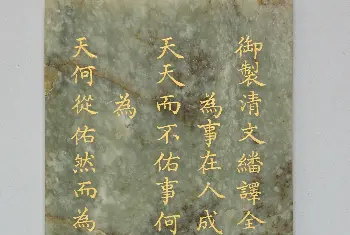 御製清文繙譯全
為事在人成
天天而不佑事何
為
天何從佑然而為